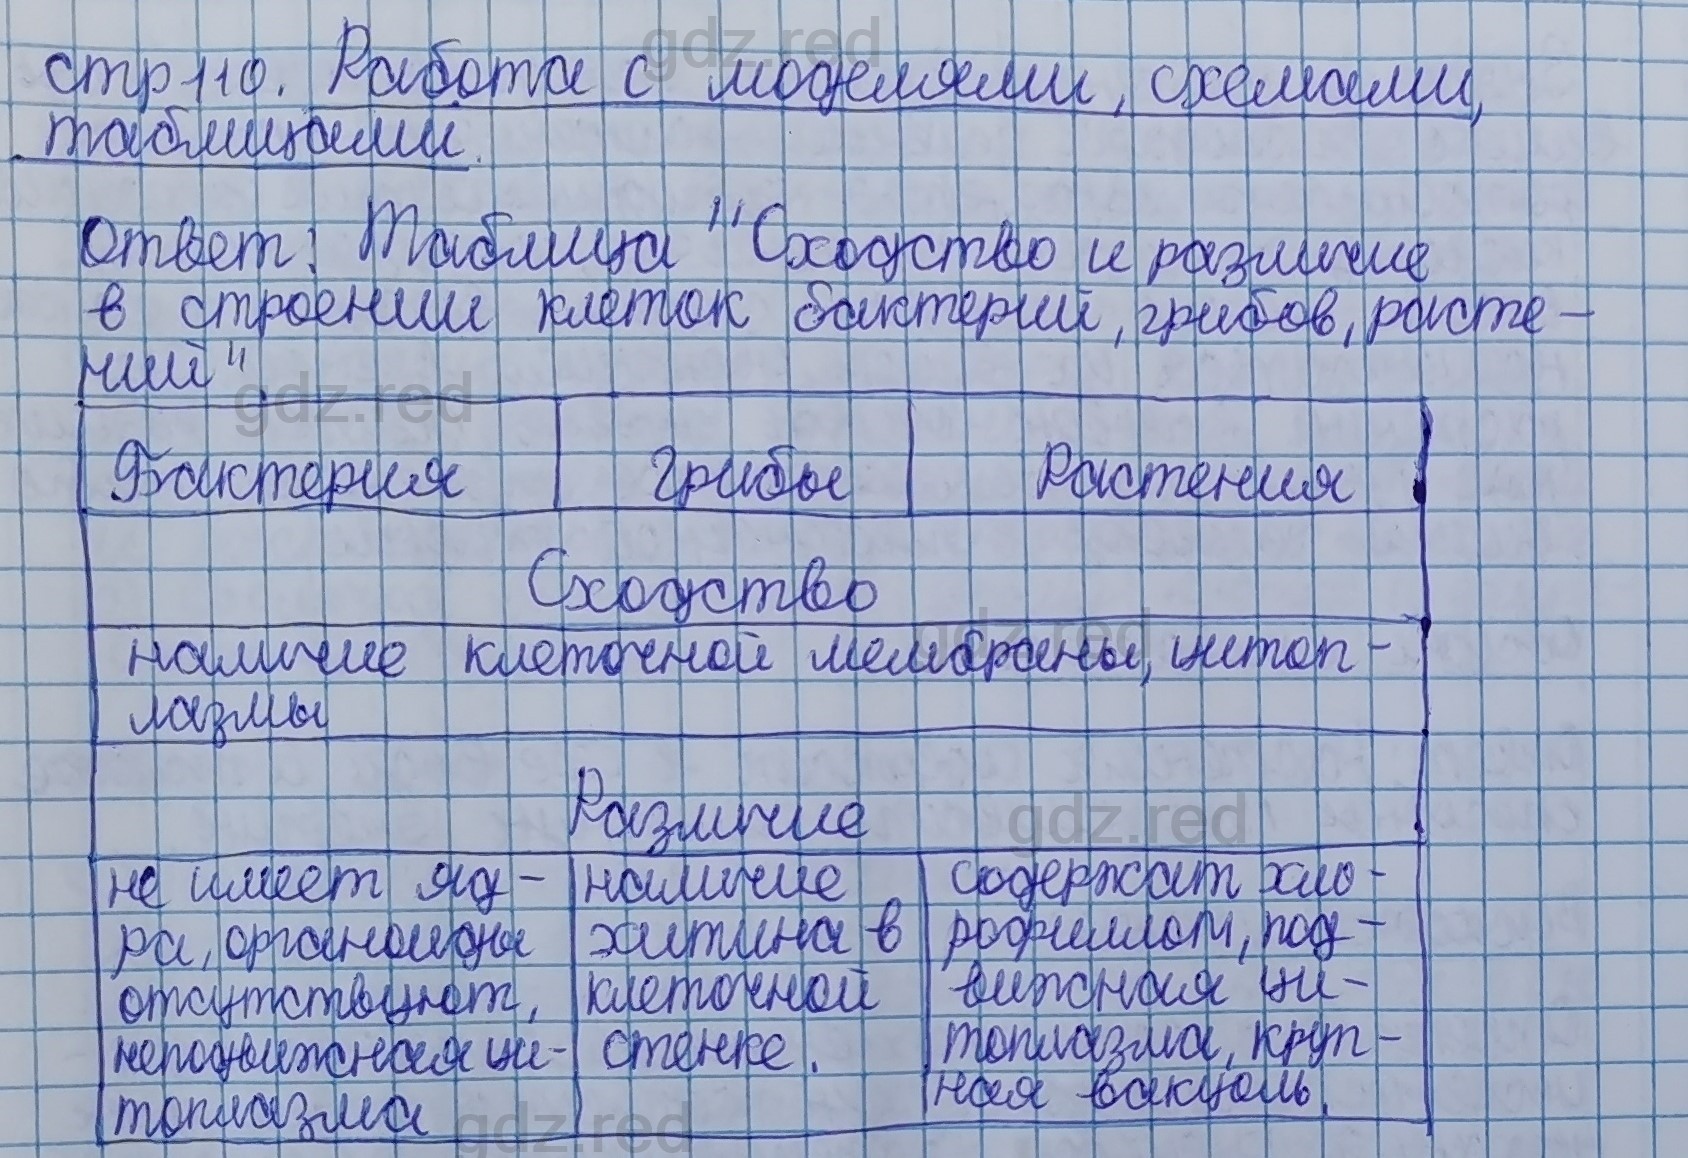 gdz.red
стр 110. Работа с моделями, схемами,
таблицами.
Ответ: Таблица "Сходство и различие
в строении клеток бактерий, грибов, расте-
ний"
gdz.red
Бактерия Грибы Растения
Сходство
gdz.red
наличие клеточной мембраны, цитоп-
лазмы
Различие
gdz.red
не имеет яд-
ра, органоиды
отсутствуют,
неподвижная ци-
топлазма
наличие
хитина в
клеточной
стенке.
содержат хло-
рофиллом, под-
вижная ци-
топлазма, круп-
ная вакуоль.
gdz.red